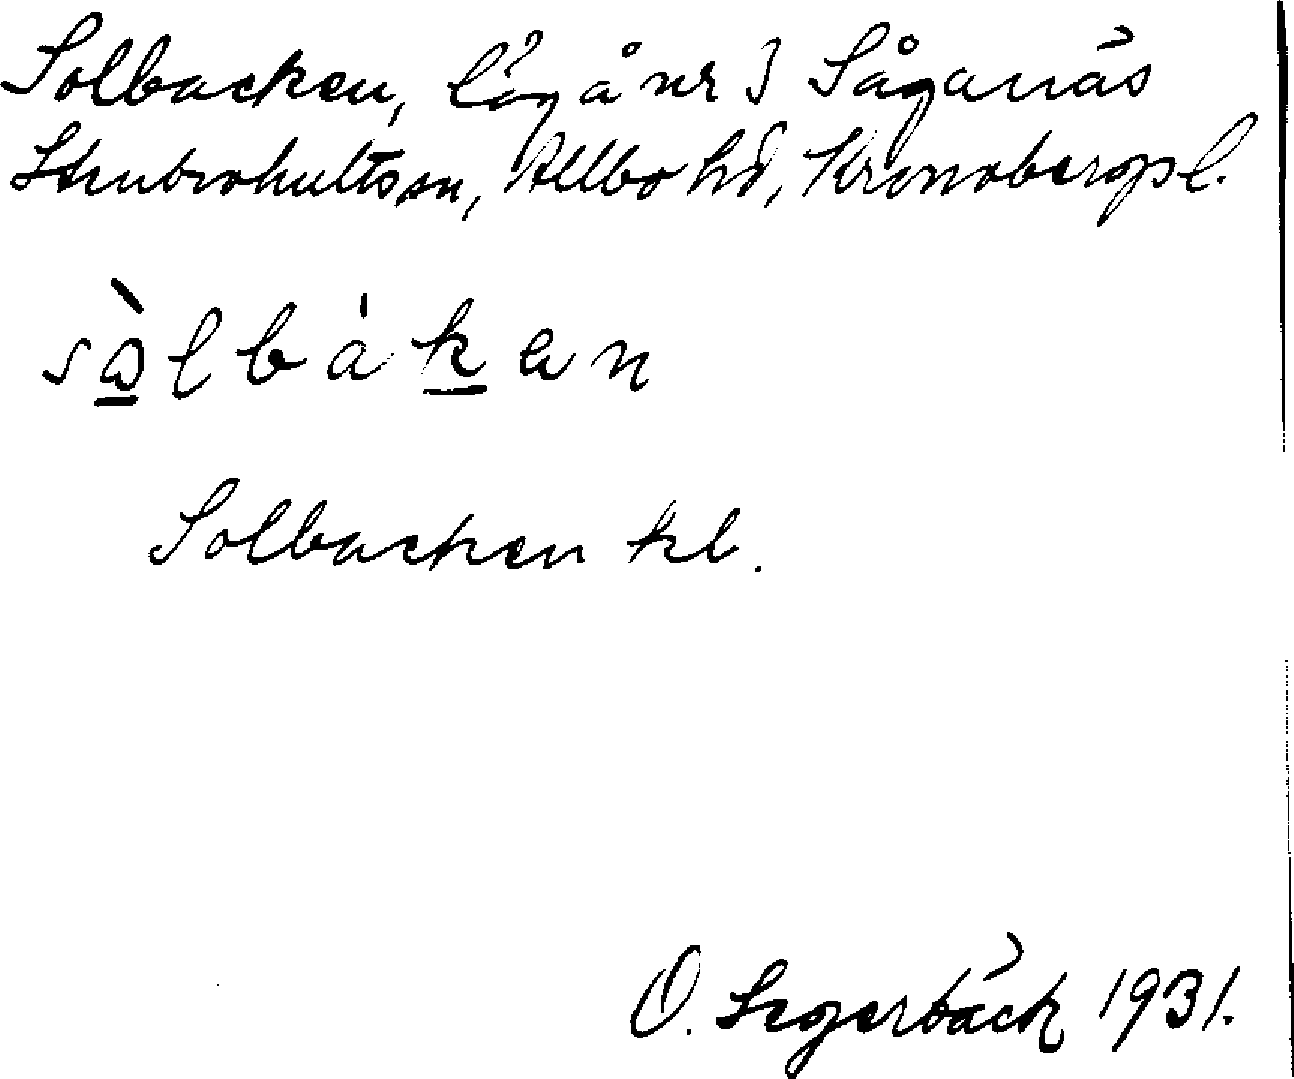 Solbacken, låg å nr 3 Såganäs
Stenbrohults sn, Allbo hd, Kronobergs l.
sòlbákan
Solbacken kl.
O. Segerbäck 1931.